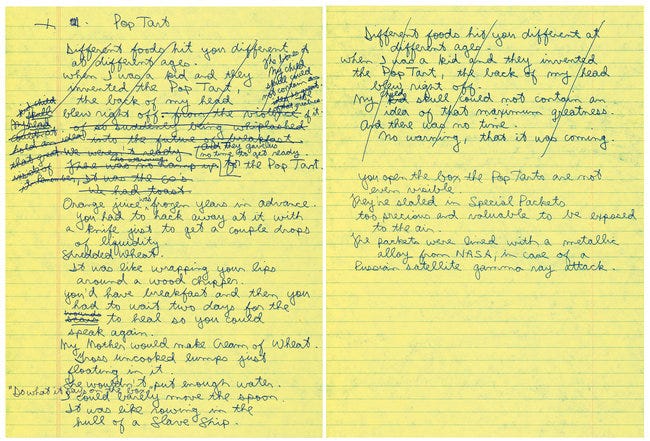 1. Pop Tart
Different foods hit you different
at different ages.
when I was a kid and they
invented the Pop Tart,
the back of my head
blew right off
of so suddenly being whiplashed
into the future of breakfast
And they gave us
no time to get ready
for the Pop Tart.
It was the 60's
We had toast
Orange juice was frozen years in advance.
You had to hack away at it with
a knife just to get a couple drops
of liquidity.
Shredded Wheat.
It was like wrapping your lips
around a wood chipper.
you'd have breakfast and then you
had to wait two days for the
wounds
to heal so you could
speak again.
My Mother would make Cream of Wheat.
Gross uncooked lumps just
floating in it.
She wouldn't put enough water.
"Do what it says on the box"
I could barely move the spoon.
It was like rowing in the
hull of a Slave Ship.
Different foods hit you different at
different ages.
when I was a kid and they invented
the Pop Tart, the back of my head
blew right off.
My child skull could not contain an
idea of that maximum greatness.
And there was no time.
No warning, that it was coming.
you open the box the Pop Tarts are not
even visible.
They're sealed in Special Packets
too precious and valuable to be exposed
to the air.
The packets were lined with a metallic
alloy from NASA, in case of a
Russian satellite gamma ray attack.